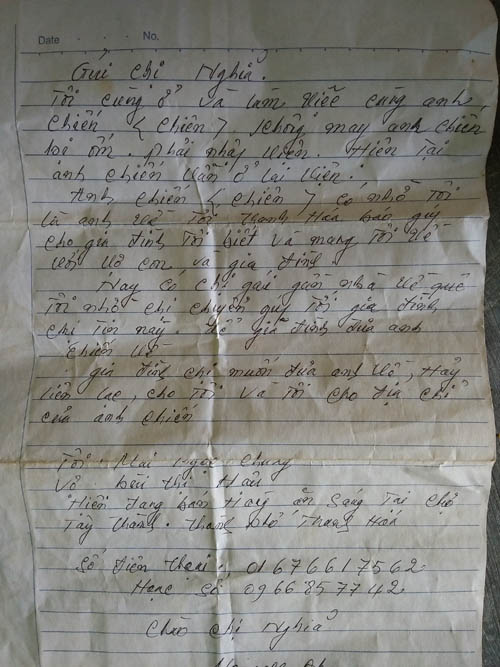 Date No.
Gửi chị Nghĩa.
Tôi cùng ở và làm việc cùng anh
Chiến < Chiên >. Không may anh Chiến
bị ốm. Phải nhập viện. Hiện tại
anh Chiến vẫn ở lại viện.
Anh Chiến < Chiên > có nhờ Tôi
là anh về Tới Thanh Hoá báo
cho gia đình Tôi biết và mang Tôi về
với vợ con, và gia đình
Nay có chị gái gần nhà về quê
Tôi nhờ chị chuyển tới gia đình
chị tin này. để gia đình đưa anh
Chiến về
gia đình chị muốn đưa anh về, Hãy
liên lạc, cho Tôi và Tôi cho địa chỉ
của anh Chiến
Tôi: Mai Ngọc Chung
Vợ Thị Hậu
Hiện đang bán Hàng ăn sáng Tại chợ
Tây Thành. Thành phố Thanh Hoá
Số điện thoại: 01676617562
Hoặc số 0966857742
Chào chị Nghĩa